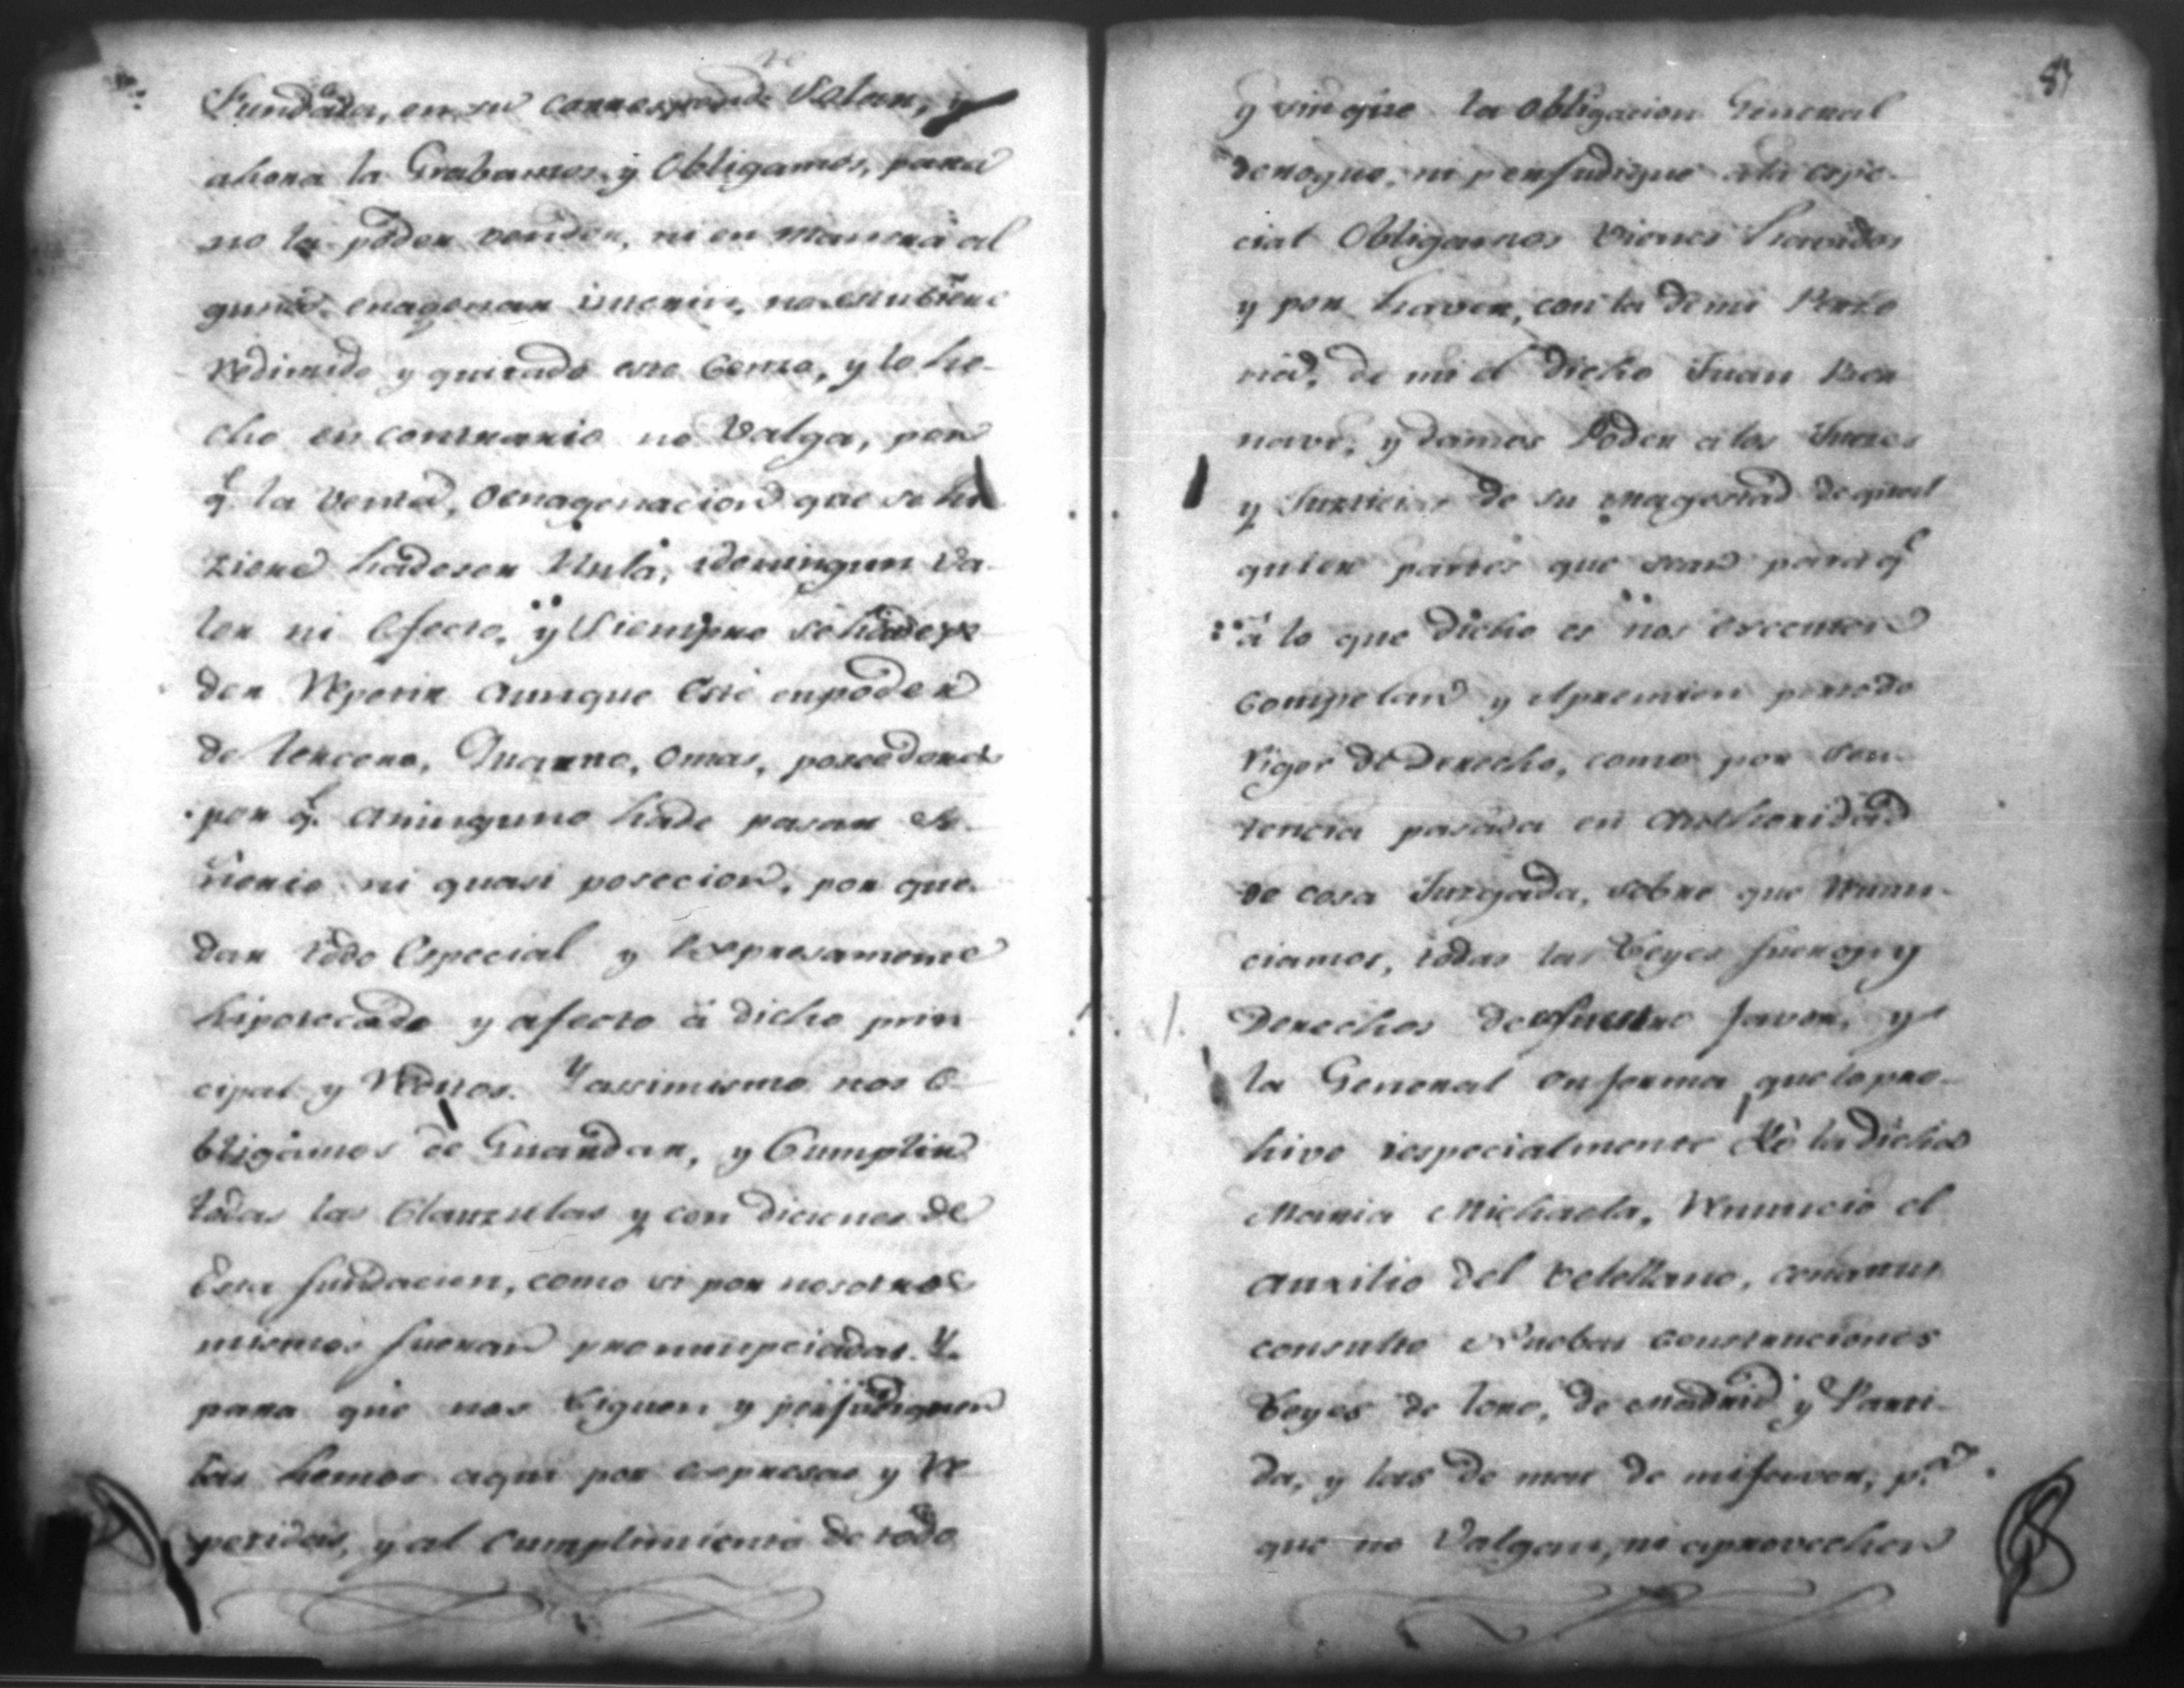 Fundada, en su correspond.te Solar, y
ahora la Grabamos, y Obligamos, para
no la poder vender, ni en manera al
guna enagenar interin, no estubiere
redimido y quitado este Censo, y lo he-
cho en contrario no Valga, por
q.e la Venta, O enagenacion que se hi
ziere hadeser Nula, ideningun Va-
lor ni Efecto, y Siempre se hade po
der Repetir aunque Esté enpoder
de tercero, Quarto, Omas, poseedores
por q.e aninguno hade pasar Se-
ñorio ni quasi posecion, por que-
dar todo Especial y Expresamente
hipotecado y afecto á dicho prin
cipal y Reditos. Y assimismo nos O-
bligamos de Guardar, y Cumplir
todas las Clauzulas y condiciones de
Esta fundacion, como si por nosotros
mismos fueran pronumpciadas. Y
para que nos liguen y perjudiquen
las hemos aqui por expresas y Re
petidas, y al Cumplimiento de todo
y sin que la obligacion General
derogue, ni perjudique ala espe-
cial Obligamos Vienes havidos
y por haver, con la de mi
de mi el dicho Juan Ber
nave, y damos Poder a los Juezes
y Justicias de Su Magestad de qual
quier partes que sean para q.e
á lo que dicho es nos executen
Compelan y Apremien portodo
Rigor de Derecho, como por Sen-
tencia pasada en Authoridad
de cosa Juzgada, sobre que Renun-
ciamos, todas las Leyes fueros, y
Derechos de nuestro favor, y
la General en forma que lo pro-
hive iespecialmente Yó la dicha
Maria Michaela, Renuncio el
Auxilio del Velellano,
consulto Nuebas Constituciones
Leyes de toro, de Madrid y Parti-
da, y las de mas de mi favor, p.a
que no Valgan, ni aprovechen